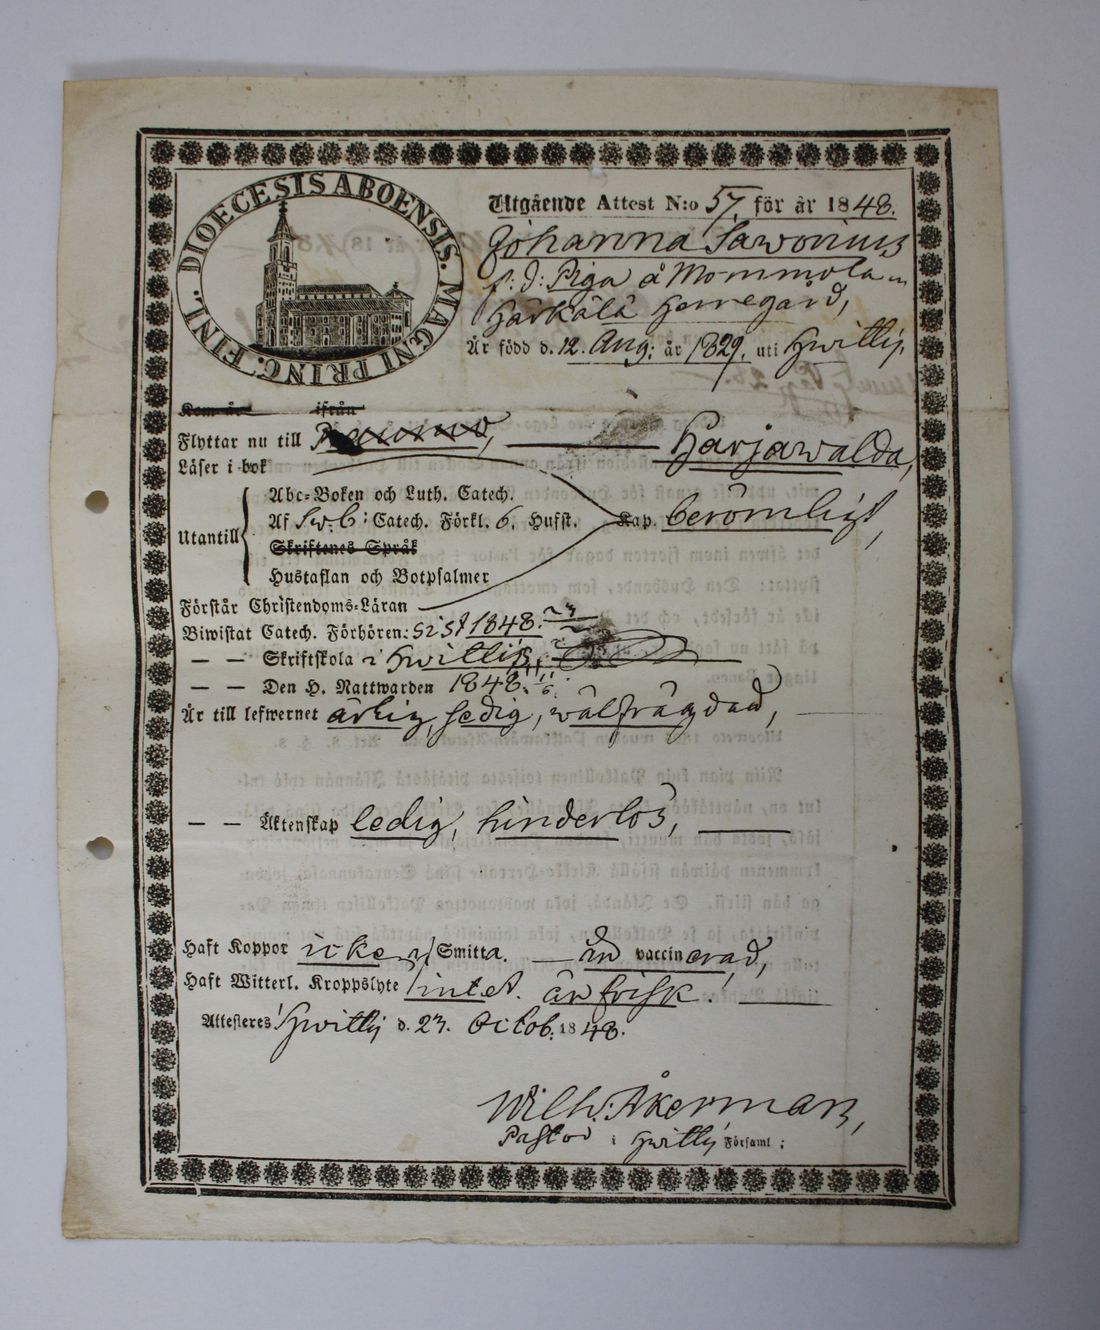 DIOECESIS ABOENSIS. MAGNI PRINC. FINL.
Utgående Attest N:o 57, för år 1848.
Johanna Sawonius
f. d. Piga å Mommola
Härkälä Herregård,
Är född d. 12. Aug: år 1829. uti Hwittis.
Kom år ifrån
Flyttar nu till Raumo, Harjawalda,
Läser i bok
Abc-Boken och Luth. Catech.
Utantill Af Sweb: Catech. Förkl. 6. Hufst. Kap. berömligt,
Skriftenes Språk
Hustaflan och Botpsalmer
Förstår Christendoms-Läran
Biwistat Catech. Förhören: sist 1848.
— — Skriftskola i Hwittis,
— — Den H. Nattwarden 1848.
Är till lefwernet ärlig, sedig, wälfrägdad,
— — Äktenskap ledig, hinderlös,
Haft Koppor icke Smitta. — än vaccinerad,
Haft Witterl. Kroppslyte intet. är frisk.
Attesteras Hwittis d. 23. Octob: 1848.
Wilh. Åkerman,
Pastor i Hwittis Församl: